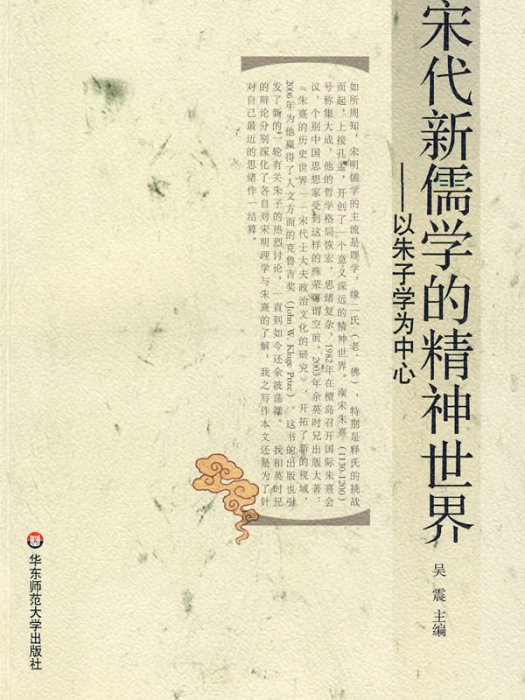 宋代新儒学的精神世界
——以朱子学为中心
吴震 主编
如所周知，宋明儒学的主流是理学，缘二氏（老、佛），特别是释氏的挑战
而起，上接孔孟，开创了一个意义深远的精神世界。南宋朱熹（1130-1200）
号称集大成，他的哲学格局恢宏，思绪复杂，1982年在檀岛召开国际朱熹会
议，个别中国思想家受到这样的殊荣可谓空前。2003年余英时兄出版大著：
《朱熹的历史世界——宋代士大夫政治文化的研究》，开拓了新的视域，
2006年为他赢得了人文方面的克鲁吉奖（John W. Kluge Prize）。这书的出版也引
发了新的一轮有关朱子的热烈讨论，一直到如今还余波荡漾。我和英时兄
的辩论分别深化了各自对宋明理学与朱熹的了解，我之写作本文还是为了针
对自己最近的思绪作一结算。
华东师范大学出版社